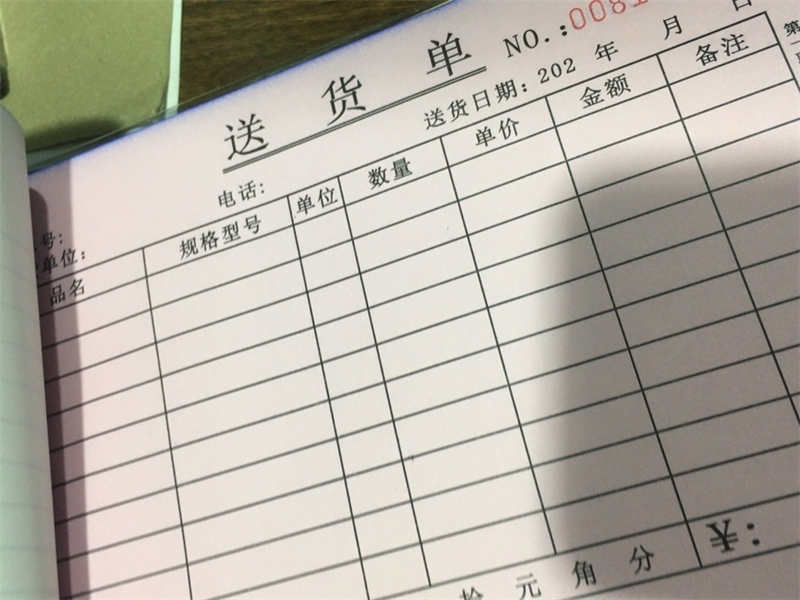 送货单
NO.:0081
送货日期:202 年 月 日
电话:
号:
单位:
品名 规格型号 单位 数量 单价 金额 备注
第
拾 元 角 分 ¥: